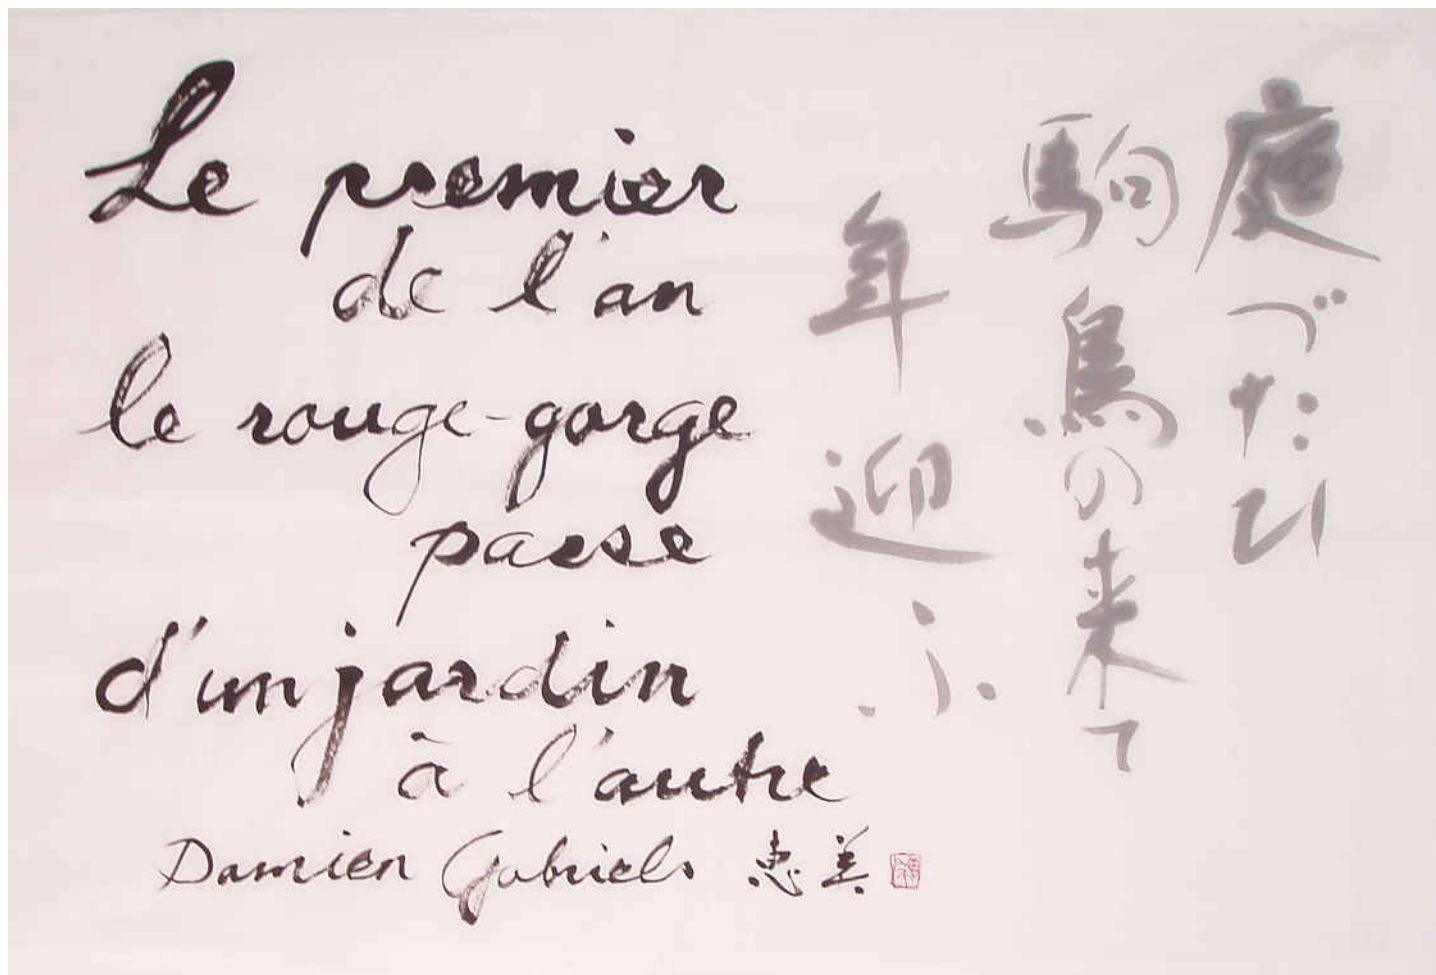 Le premier
de l'an
le rouge-gorge
passe
d'un jardin
à l'autre
Damien Gabriels 恵美
庭づたひ
駒鳥の来て
年迎ふ